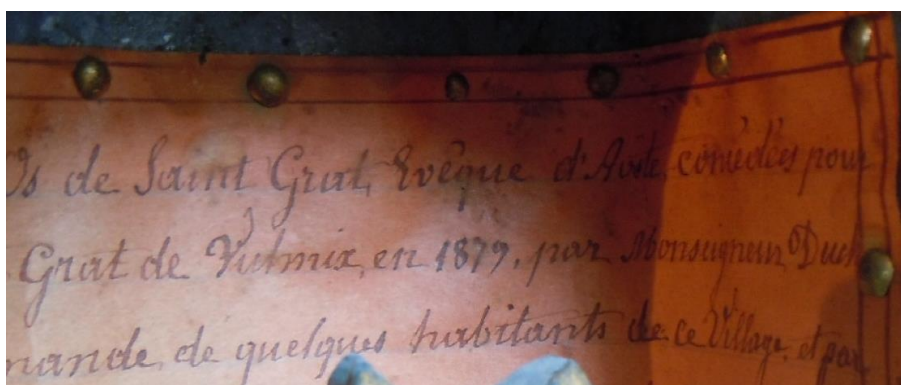 Os de Saint Grat, Evêque d'Aoste, concédées pour
Grat de Vulmix, en 1879, par Monseigneur Duc
mande de quelques habitants de ce Village, et par